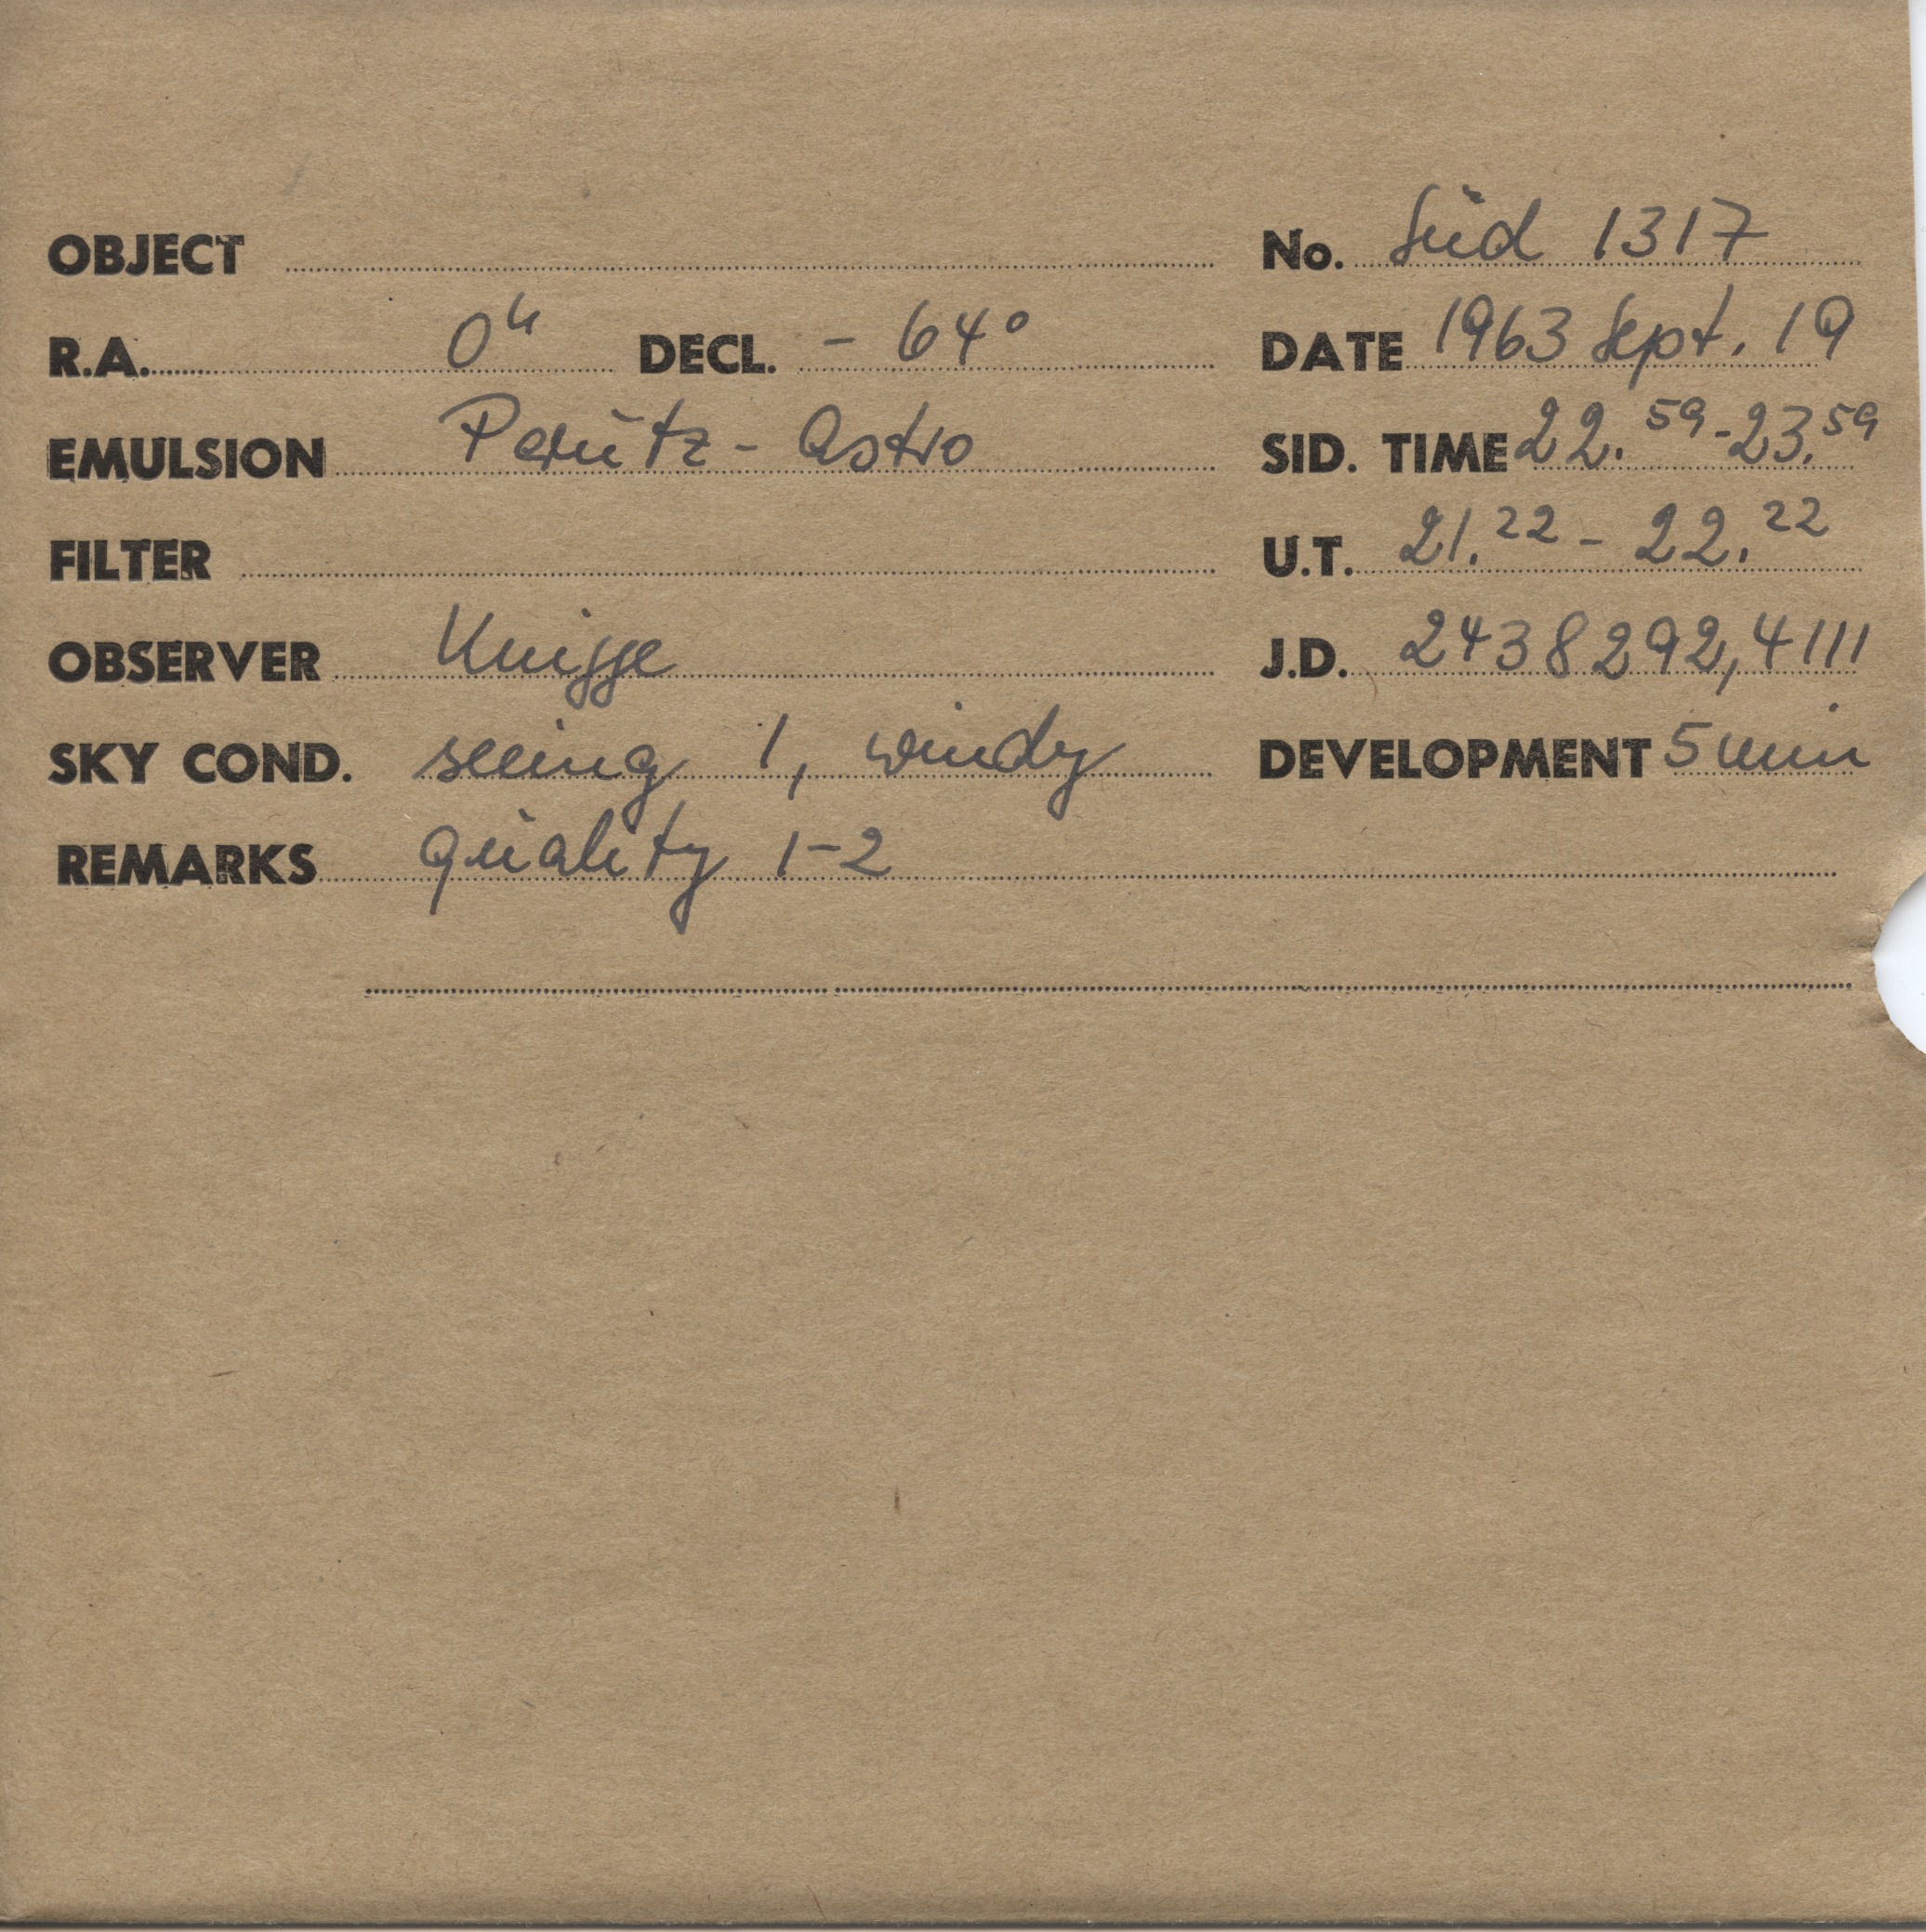 OBJECT No. Süd 1317
R.A. 0h DECL. - 64° DATE 1963 Sept. 19
EMULSION Perutz - Astro SID. TIME 22.59 - 23.59
FILTER U.T. 21.22 - 22.22
OBSERVER Knigge J.D. 2438292,4111
SKY COND. seeing 1, windy DEVELOPMENT 5 min
REMARKS quality 1-2